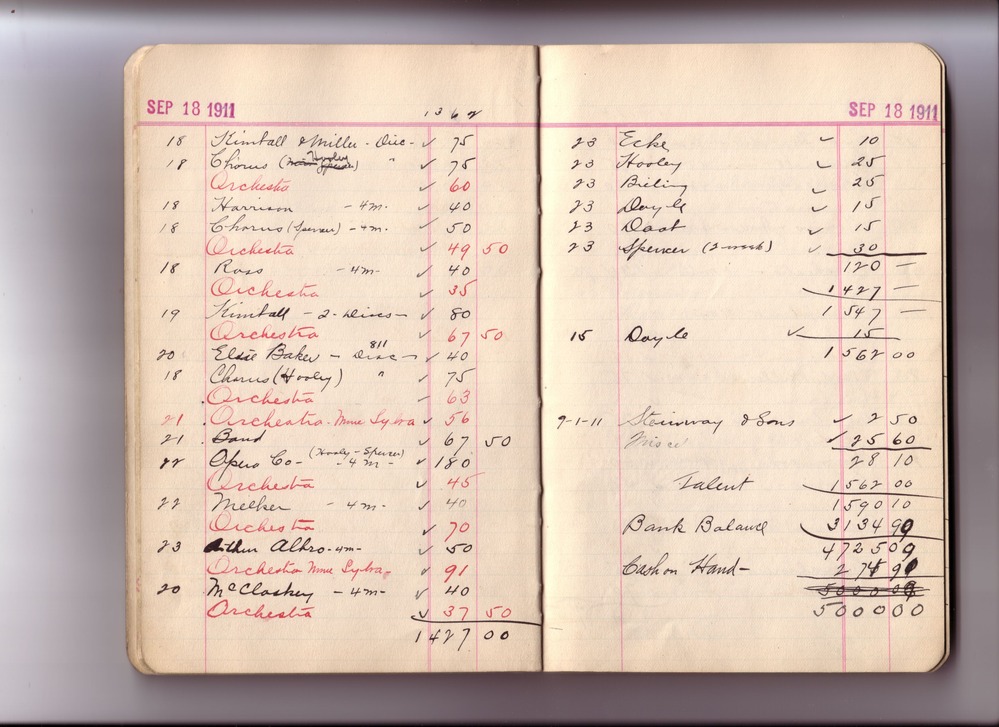 SEP 18 1911
1362
18 Kimball & Miller - Disc - ✓ 75
18 Chorus (Hooley) " ✓ 75
Orchestra ✓ 60
18 Harrison - 4m. ✓ 40
18 Chorus (Spencer) - 4m. ✓ 50
Orchestra ✓ 49 50
18 Ross - 4m - ✓ 40
Orchestra ✓ 35
19 Kimball - 2 - Discs - ✓ 80
Orchestra ✓ 67 50
811
20 Elsie Baker - Disc - ✓ 40
18 Chorus (Hooley) " ✓ 75
Orchestra - 63
21 Orchestra - Mme Sylva ✓ 56
21 Band ✓ 67 50
(Hooley - Spencer)
22 Opera Co - - 4m - ✓ 180
Orchestra ✓ 45
22 Meeker - 4m. ✓ 40
Orchestra ✓ 70
23 Arthur Albro - 4m - ✓ 50
Orchestra Mme Sylva ✓ 91
20 McCloskey - 4m - ✓ 40
Orchestra ✓ 37 50
1427 00
SEP 18 1911
23 Ecke ✓ 10
23 Hooley ✓ 25
23 Bieling ✓ 25
23 Doyle ✓ 15
23 Daab ✓ 15
23 Spencer (3 week) ✓ 30
120 -
1427 -
1547 -
15 Doyle ✓ 15
1562 00
9-1-11 Steinway & Sons ✓ 2 50
Misce ✓ 25 60
28 10
Talent 1562 00
1590 10
Bank Balance 3134 99
4725 09
Cash on Hand - 274 91
5000 00